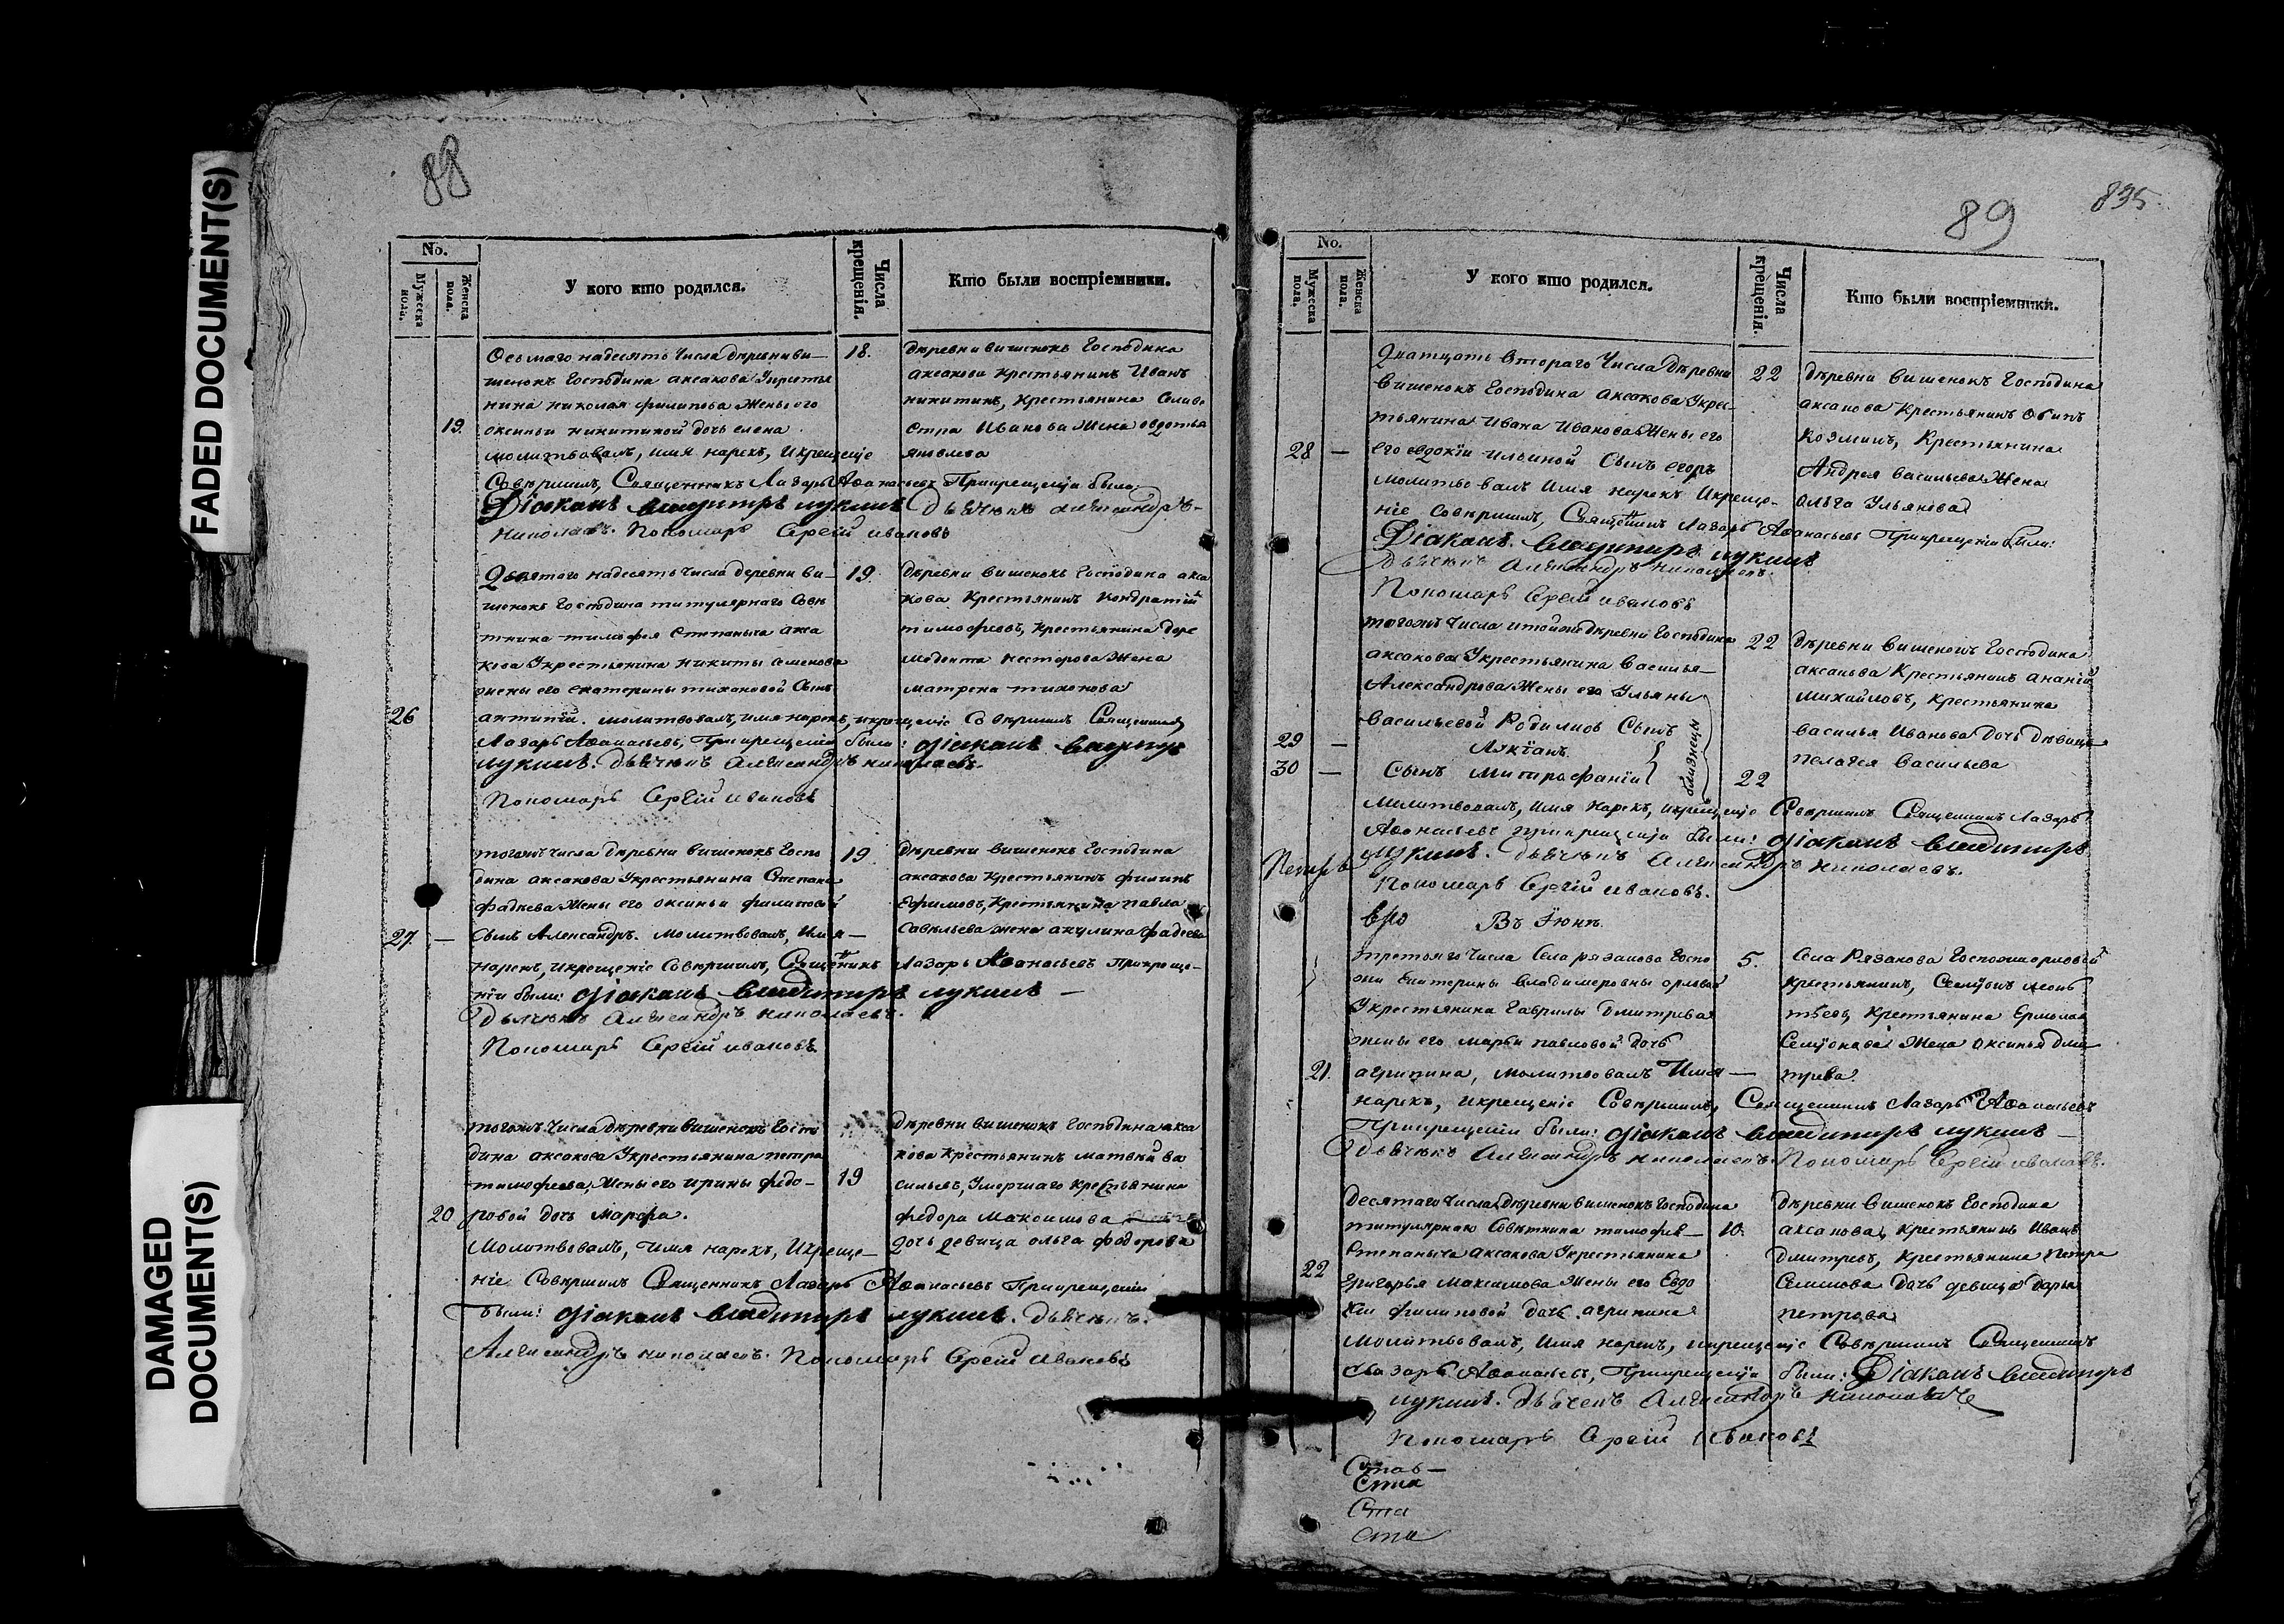 FADED DOCUMENT(S)
DAMAGED
DOCUMENT(S)
88
No.
Мужеска пола.
Женска пола.
У кого кто родился.
Числа крещенія.
Кто были воспріемники.
19.
Осьмаго надесять числа деревни ви-
шенокъ Господина аксакова Укрестья
нина николая филипова Жены его
оксиньи никитиной дочь елена
молитвовалъ, имя нарекъ, Икрещеніе
Совершилъ, Священникъ Лазарь Аѳанасьевъ Прикрещеніи были:
Діаконъ владимиръ лукинъ Дьячекъ александръ
николаевъ. Пономарь Сергій ивановъ
18.
деревни вишенокъ Господина
аксакова крестьянинъ Иванъ
никитинъ, крестьянина Селиве
стра Иванова Жена овдотья
яковлева
26
Девятого надесять числа деревни ви-
шенокъ Господина титулярнаго Совѣ
тника тимофея Степаныча акса
кова Укрестьянина никиты семенова
жены его екатерины тихоновой Сынъ
антипій. молитвовалъ, имя нарекъ, икрещеніе Совершилъ Священникъ
Лазарь Аѳанасьевъ, Прикрещеніи были: діаконъ владимиръ
лукинъ. Дьячекъ Александръ николаевъ.
Пономарь Сергій ивановъ
19
деревни вишенокъ Господина акса
кова Крестьянинъ Кондратій
тимофеевъ, крестьянина доре
медонта несторова Жена
матрена тихонова
27. —
тогожъ числа деревни вишенокъ Госпо
дина аксакова Укрестьянина Степана
фадеева Жены его оксиньи филиповой
Сынъ Александръ. молитвовалъ, Имя —
нарекъ, икрещеніе Совершилъ, Священникъ Лазарь Аѳанасьевъ Прикреще-
ніи были: діаконъ владимиръ лукинъ —
Дьячекъ Александръ николаевъ.
Пономарь Сергій ивановъ
19
деревни вишенокъ Господина
аксакова Крестьянинъ филипъ
Ефимовъ, крестьянина павла
Савельева жена акулина фадеева
20
тогожъ числа деревни вишенокъ Госпо
дина аксакова Укрестьянина петра
тимофеева, Жены его ирины федо-
ровой дочь Марфа.
Молитвовалъ, Имя нарекъ, Икреще-
ніе Совершилъ Священникъ Лазарь Аѳанасьевъ Прикрещеніи
были: діаконъ владимиръ лукинъ. Дьячекъ
Александръ николаевъ. Пономарь Сергій Ивановъ
19
деревни вишенокъ Господина акса
кова Крестьянинъ матвей ва
сильевъ, Умершаго крестьянина
федора Максимова
дочь девица ольга федорова
89
895.
No.
Мужеска пола.
Женска пола.
У кого кто родился.
Числа крещенія.
Кто были воспріемники.
28 —
Дватцать втораго Числа деревни
вишенокъ Господина аксакова Укрес-
тьянина Ивана Иванова Жены его
его евдокіи ильиной Сынъ егоръ
молитвовалъ имя нарекъ Икреще-
ніе Совершилъ, Священникъ Лазарь Аѳанасьевъ Прикрещеніи были:
Діаконъ. владимиръ лукинъ
Дьячекъ Александръ николаевъ.
Пономарь Сергій ивановъ
22
деревни вишенокъ Господина
аксакова Крестьянинъ Осипъ
Козминъ, Крестьянина
Андрея васильева Жена
ольга Ульянова
29 —
30 —
тогожъ числа итойже деревни Господина
аксакова Укрестьянина василья —
Александрова Жены его Ульяны
васильевой Родились Сынъ
Лукіанъ
Сынъ митрофаній
близнецы
молитвовалъ, имя нарекъ, икрещеніе Совершилъ Священникъ Лазарь
Аѳанасьевъ прикрещеніи были: діаконъ владимиръ
лукинъ. Дьячекъ Александръ николаевъ.
Пономарь Сергій ивановъ.
22
22
деревни вишенокъ Господина
аксакова Крестьянинъ ананій
михайловъ, крестьянина
василья Иванова Дочь девица
пелагея васильева
Петръ
Въ Іюнѣ
21.
третьяго Числа Села рязанова Госпо
жи Екатерины владимеровны орловой
Укрестьянина Гаврилы дмитрева
жены его марьи павловой дочь
агрипина, молитвовалъ Имя —
нарекъ, икрещеніе Совершилъ, Священникъ Лазарь Аѳанасьевъ
Прикрещеніи были: діаконъ владимиръ лукинъ —
Дьячекъ Александръ николаевъ. Пономарь Сергій ивановъ.
5.
Села Рязанова Госпожи орловой
крестьянинъ, Семіонъ леон
тьевъ, Крестьянина Ермолая
Семіонова Жена оксинья дми
трева.
22
десятаго Числа деревни вишенокъ Господина
титулярнаго Совѣтника тимофея —
Степаныча аксакова Укрестьянина
григорья максимова Жены его Евдо
кіи филиповой дочь агрипина
молитвовалъ, имя нарекъ, икрещеніе Совершилъ Священникъ
Лазарь Аѳанасьевъ, Прикрещеніи были: Діаконъ владимиръ
лукинъ. Дьячекъ Александръ николаевъ
Пономарь Сергій Ивановъ
10.
деревни вишенокъ Господина
аксакова, крестьянинъ Иванъ
дмитревъ, крестьянина петра
Семенова дочь девица дарья
петрова
Став —
Ста
Ста
Ста